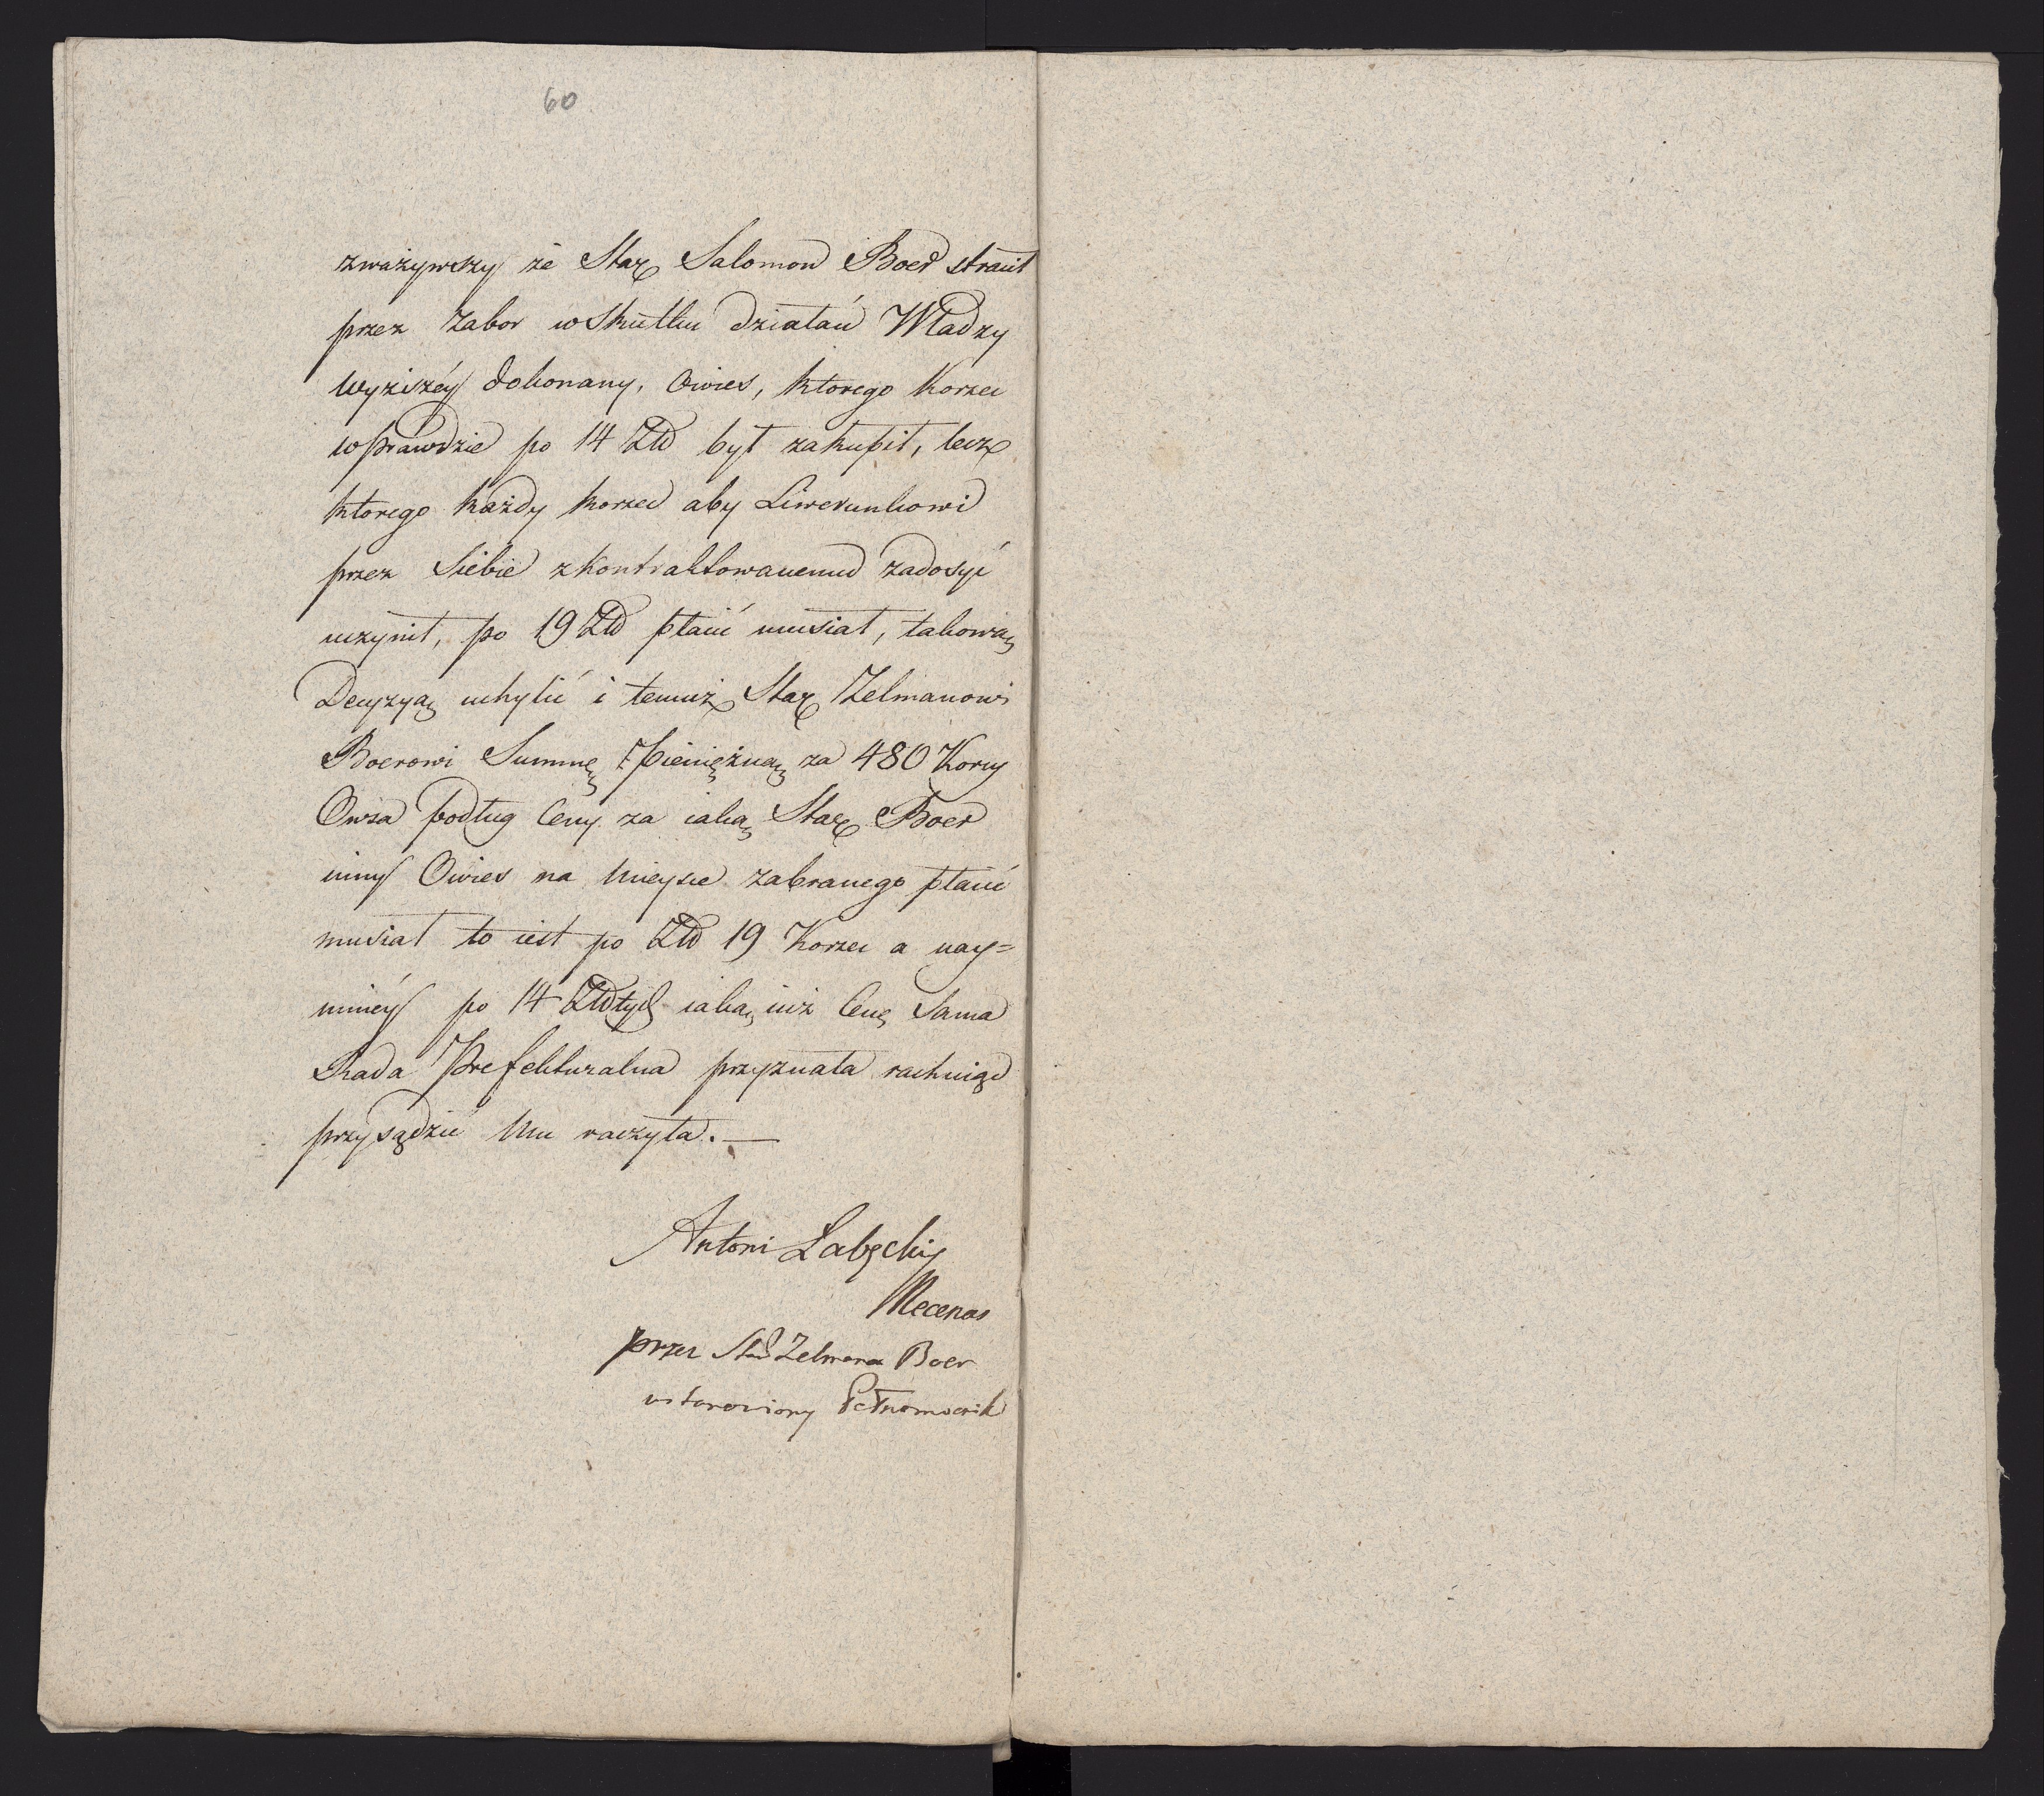 60
zważywszy że Star Salomon Boer stracił
przez Zabor w Skutku działań Władzy
wyższéy dokonany, Owies, którego Korzec
w prawdzie po 14 Złł był zakupił, lecz
którego każdy korzec aby Liwerunkowi
przez Siebie zkontraktowanemu zadosyć
uczynił, po 19 Złł płacić musiał, takową
Decyzyą uchylić i temuż Star Zelmanowi
Boerowi Summę Pieniężną za 480 Korcy
Owsa podług Ceny za iaką Star Boer
inny Owies na mieysce zabranego płacić
musiał to iest po Złł 19 Korzec a nay=
mniéy po 14 Złłtych iaką iuż Cenę Sama
Rada Prefekturalna przyznała rachuiąc
przysądzić Mu raczyła.—
Antoni Łabęcki
Mecenas
przez Zelmana Boer
ustanowiony Pełnomocnik